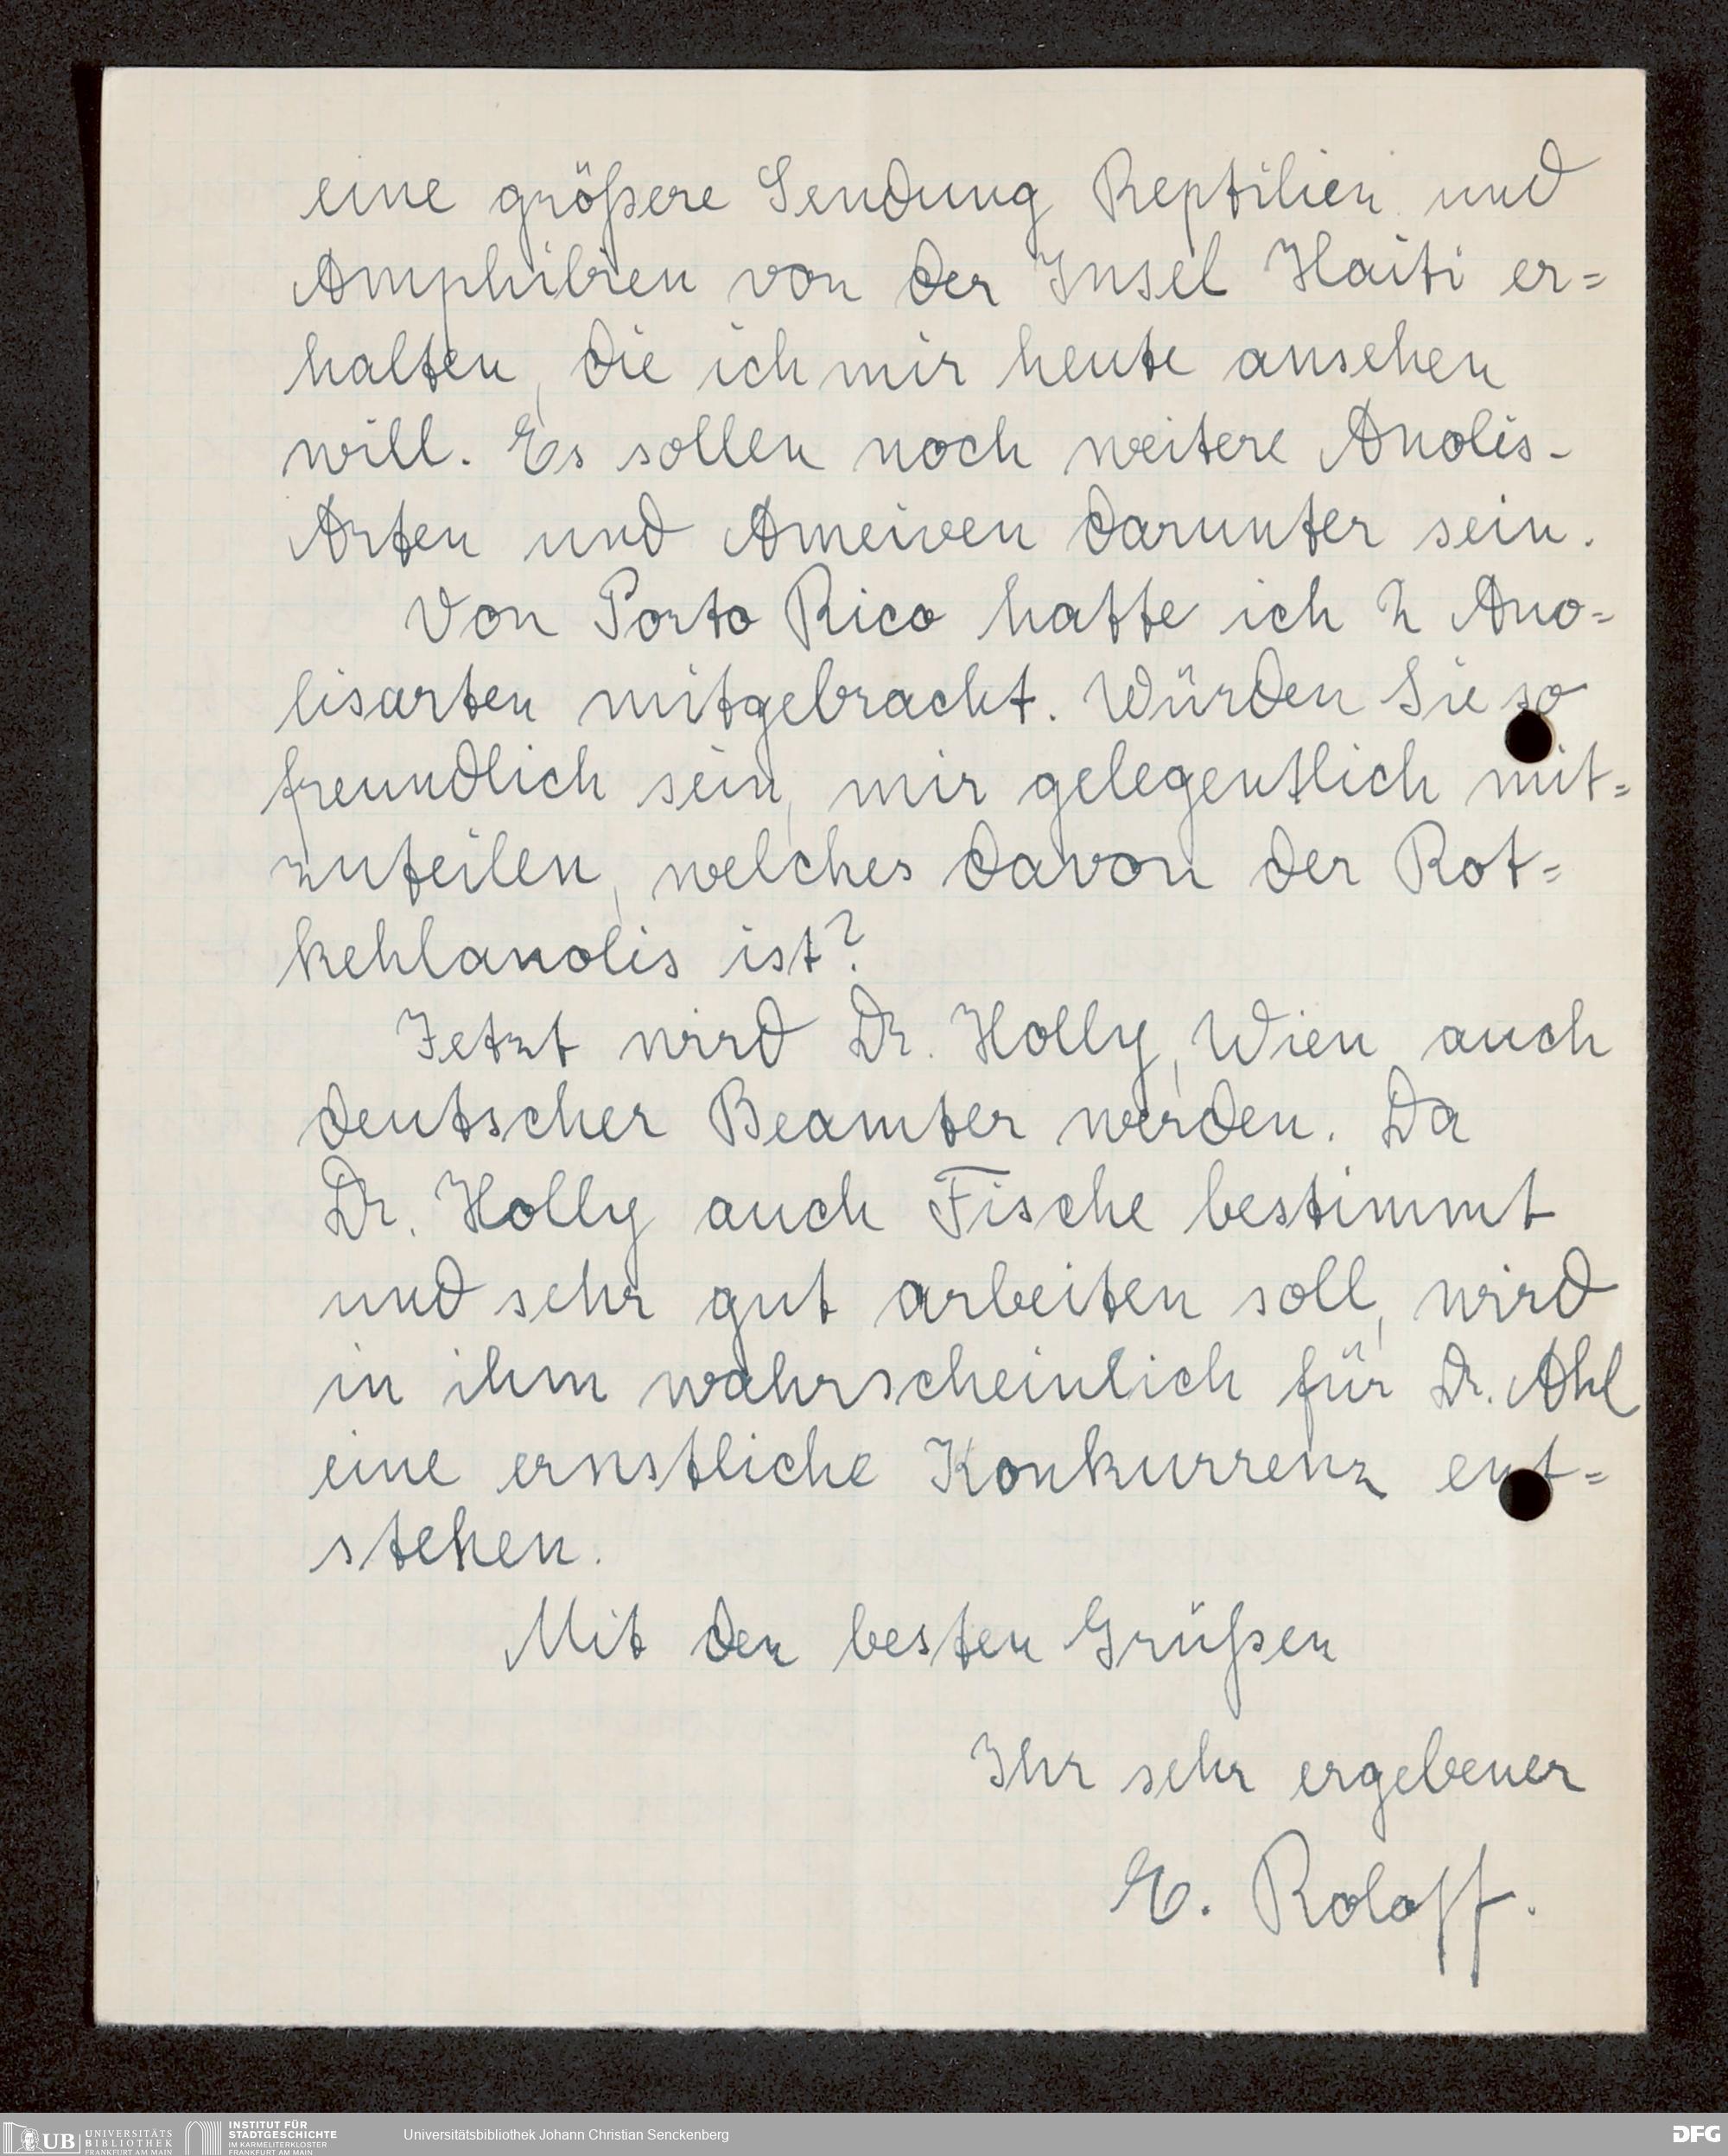 eine größere Sendung Reptilien und
Amphibien von der Insel Haiti er=
halten, die ich mir heute ansehen
will. Es sollen noch weitere Anolis-
Arten und Ameiven darunter sein.
Von Porto Rico hatte ich 2 Ano=
lisarten mitgebracht. Würden Sie so
freundlich sein, mir gelegentlich mit=
zuteilen, welches davon der Rot=
kehlanolis ist?
Jetzt wird Dr. Holly, Wien auch
deutscher Beamter werden. Da
Dr. Holly auch Fische bestimmt
und sehr gut arbeiten soll, wird
in ihm wahrscheinlich für Dr. Ahl
eine ernstliche Konkurrenz ent=
stehen.
Mit den besten Grüßen
Ihr sehr ergebener
E. Roloff.
UB UNIVERSITÄTS
BIBLIOTHEK
FRANKFURT AM MAIN
INSTITUT FÜR
STADTGESCHICHTE
IM KARMELITERKLOSTER
FRANKFURT AM MAIN
Universitätsbibliothek Johann Christian Senckenberg
DFG